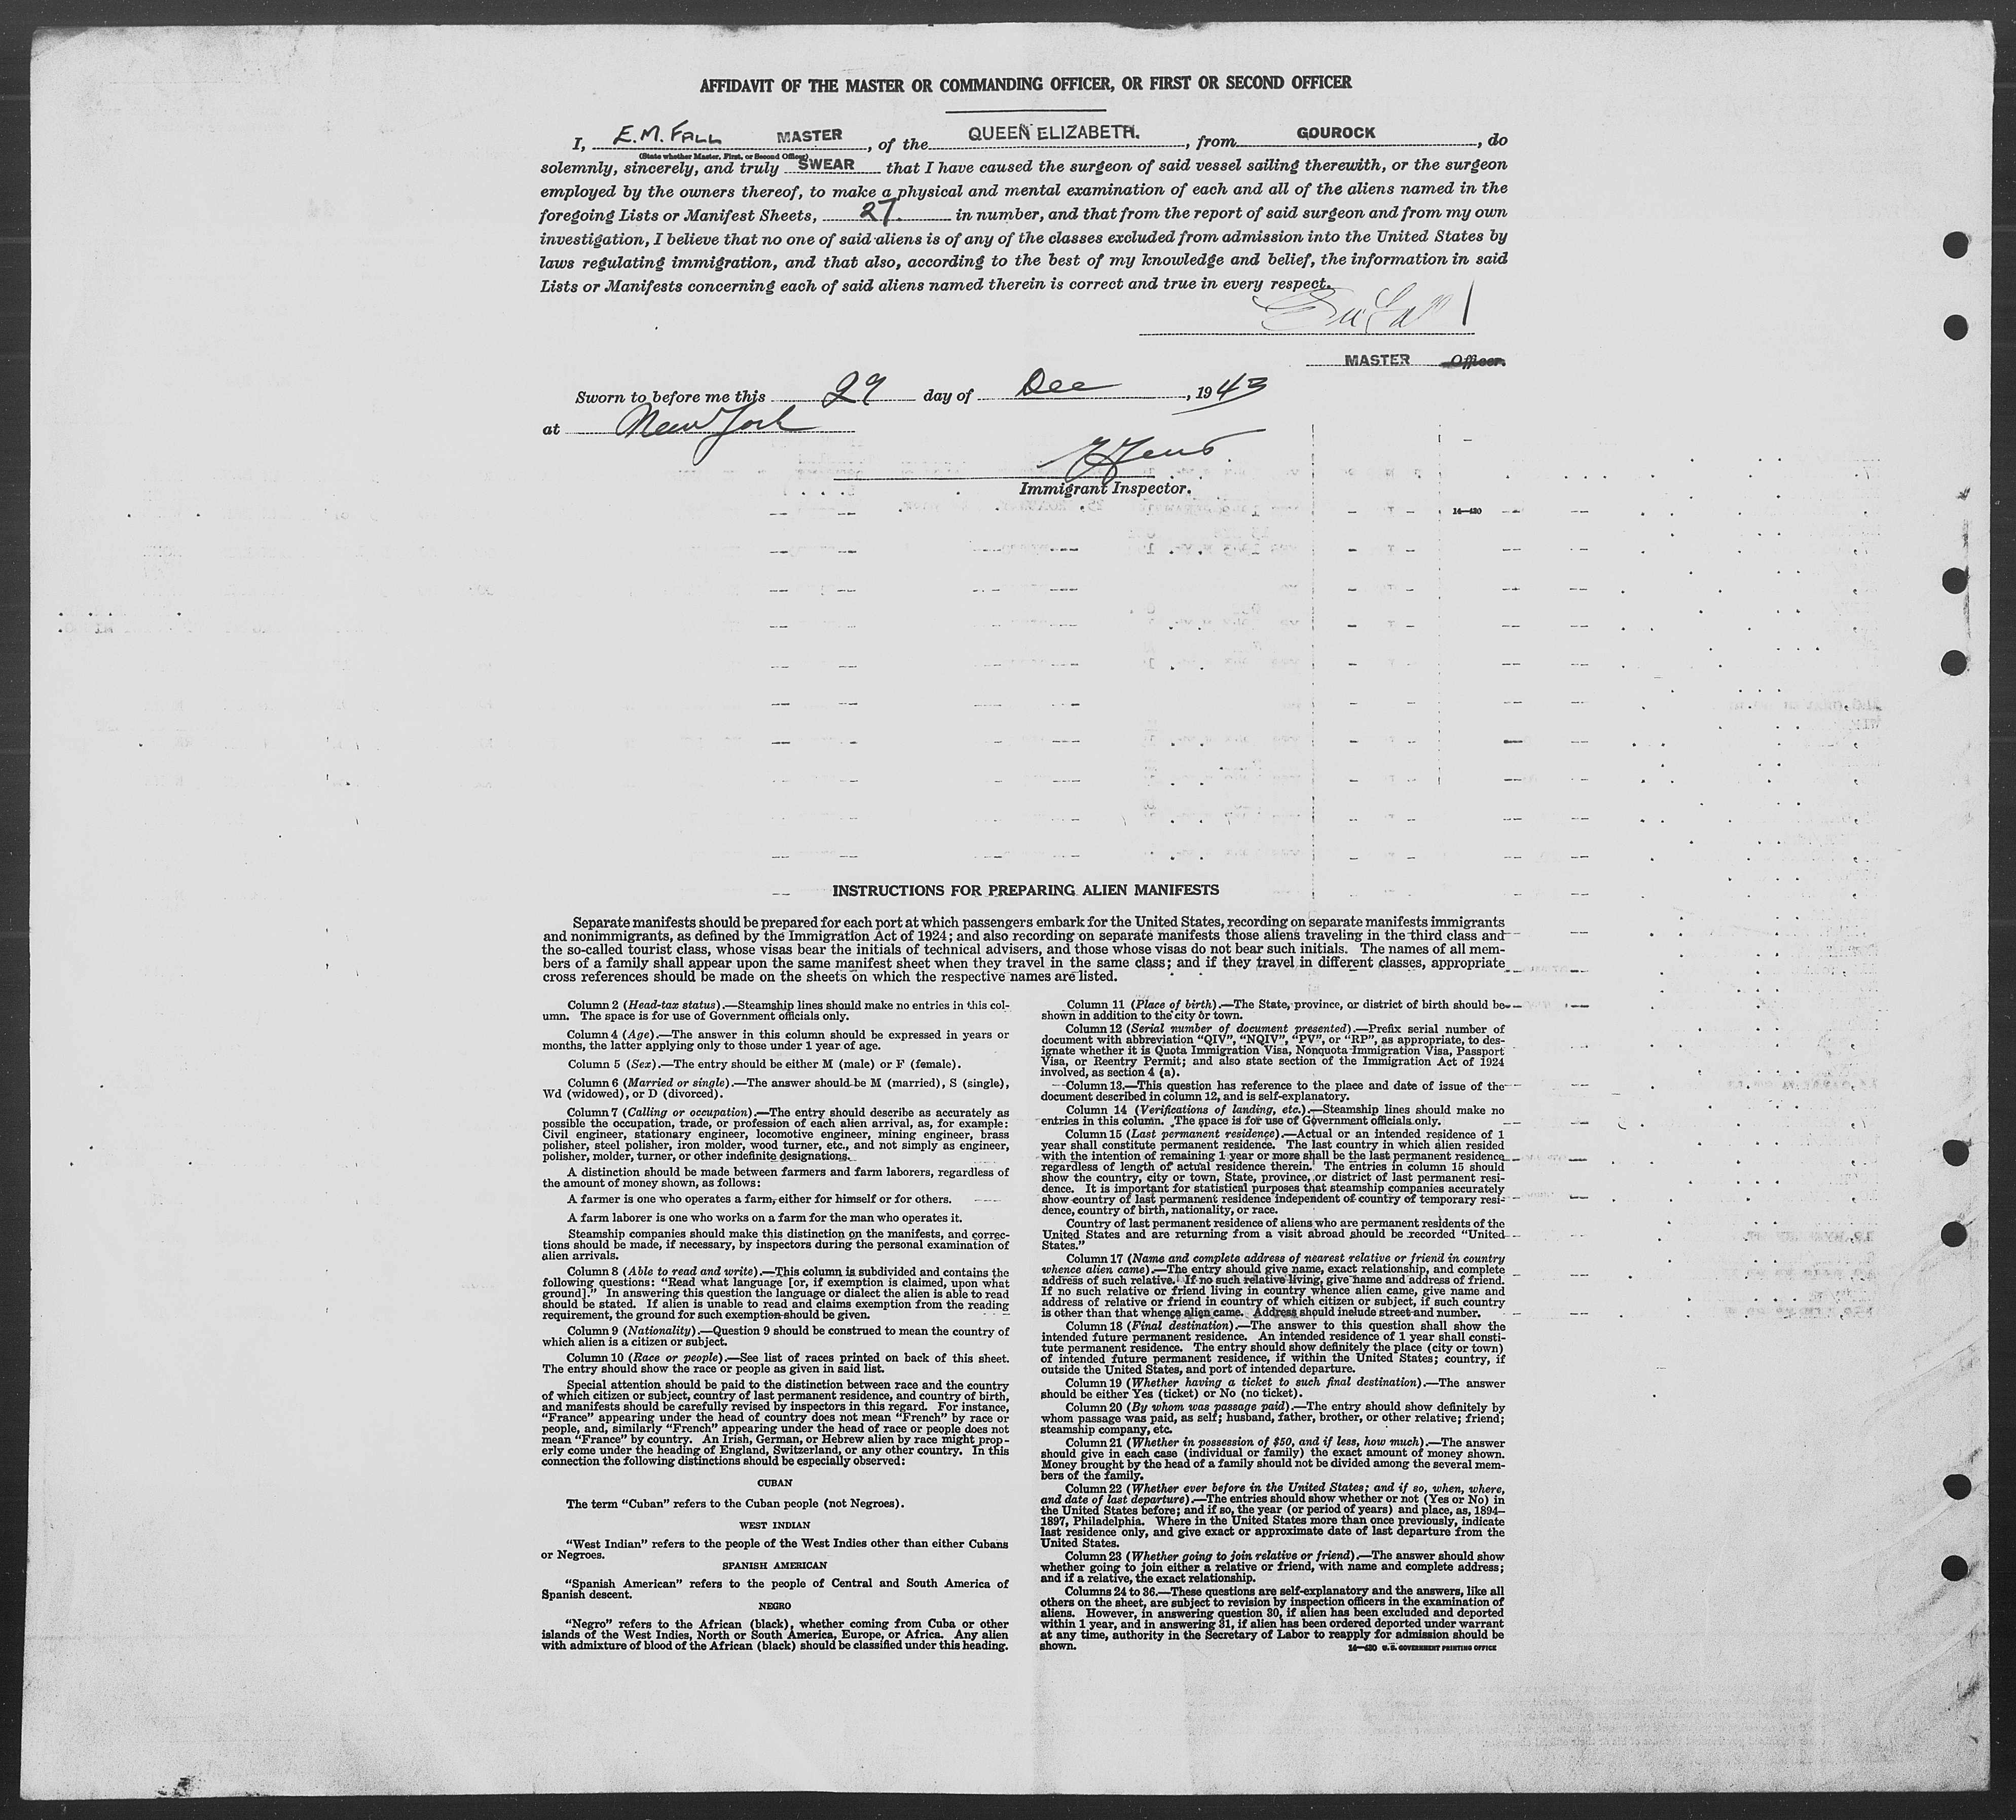 AFFIDAVIT OF THE MASTER OR COMMANDING OFFICER, OR FIRST OR SECOND OFFICER
I, E.M. FALL MASTER, of the QUEEN ELIZABETH., from GOUROCK, do
(State whether Master, First, or Second Officer)
solemnly, sincerely, and truly SWEAR that I have caused the surgeon of said vessel sailing therewith, or the surgeon
employed by the owners thereof, to make a physical and mental examination of each and all of the aliens named in the
foregoing Lists or Manifest Sheets, 27. in number, and that from the report of said surgeon and from my own
investigation, I believe that no one of said aliens is of any of the classes excluded from admission into the United States by
laws regulating immigration, and that also, according to the best of my knowledge and belief, the information in said
Lists or Manifests concerning each of said aliens named therein is correct and true in every respect.
MASTER Officer.
Sworn to before me this 29 day of Dec, 1943
at New York
Immigrant Inspector.
14—430
INSTRUCTIONS FOR PREPARING ALIEN MANIFESTS
Separate manifests should be prepared for each port at which passengers embark for the United States, recording on separate manifests immigrants
and nonimmigrants, as defined by the Immigration Act of 1924; and also recording on separate manifests those aliens traveling in the third class and
the so-called tourist class, whose visas bear the initials of technical advisers, and those whose visas do not bear such initials. The names of all mem-
bers of a family shall appear upon the same manifest sheet when they travel in the same class; and if they travel in different classes, appropriate
cross references should be made on the sheets on which the respective names are listed.
Column 2 (Head-tax status).—Steamship lines should make no entries in this col-
umn. The space is for use of Government officials only.
Column 4 (Age).—The answer in this column should be expressed in years or
months, the latter applying only to those under 1 year of age.
Column 5 (Sex).—The entry should be either M (male) or F (female).
Column 6 (Married or single).—The answer should be M (married), S (single),
Wd (widowed), or D (divorced).
Column 7 (Calling or occupation).—The entry should describe as accurately as
possible the occupation, trade, or profession of each alien arrival, as, for example:
Civil engineer, stationary engineer, locomotive engineer, mining engineer, brass
polisher, steel polisher, iron molder, wood turner, etc., and not simply as engineer,
polisher, molder, turner, or other indefinite designations.
A distinction should be made between farmers and farm laborers, regardless of
the amount of money shown, as follows:
A farmer is one who operates a farm, either for himself or for others.
A farm laborer is one who works on a farm for the man who operates it.
Steamship companies should make this distinction on the manifests, and correc-
tions should be made, if necessary, by inspectors during the personal examination of
alien arrivals.
Column 8 (Able to read and write).—This column is subdivided and contains the
following questions: “Read what language [or, if exemption is claimed, upon what
ground].” In answering this question the language or dialect the alien is able to read
should be stated. If alien is unable to read and claims exemption from the reading
requirement, the ground for such exemption should be given.
Column 9 (Nationality).—Question 9 should be construed to mean the country of
which alien is a citizen or subject.
Column 10 (Race or people).—See list of races printed on back of this sheet.
The entry should show the race or people as given in said list.
Special attention should be paid to the distinction between race and the country
of which citizen or subject, country of last permanent residence, and country of birth,
and manifests should be carefully revised by inspectors in this regard. For instance,
“France” appearing under the head of country does not mean “French” by race or
people, and, similarly “French” appearing under the head of race or people does not
mean “France” by country. An Irish, German, or Hebrew alien by race might prop-
erly come under the heading of England, Switzerland, or any other country. In this
connection the following distinctions should be especially observed:
CUBAN
The term “Cuban” refers to the Cuban people (not Negroes).
WEST INDIAN
“West Indian” refers to the people of the West Indies other than either Cubans
or Negroes.
SPANISH AMERICAN
“Spanish American” refers to the people of Central and South America of
Spanish descent.
NEGRO
“Negro” refers to the African (black), whether coming from Cuba or other
islands of the West Indies, North or South America, Europe, or Africa. Any alien
with admixture of blood of the African (black) should be classified under this heading.
Column 11 (Place of birth).—The State, province, or district of birth should be
shown in addition to the city or town.
Column 12 (Serial number of document presented).—Prefix serial number of
document with abbreviation “QIV”, “NQIV”, “PV”, or “RP”, as appropriate, to des-
ignate whether it is Quota Immigration Visa, Nonquota Immigration Visa, Passport
Visa, or Reentry Permit; and also state section of the Immigration Act of 1924
involved, as section 4 (a).
Column 13.—This question has reference to the place and date of issue of the
document described in column 12, and is self-explanatory.
Column 14 (Verifications of landing, etc.).—Steamship lines should make no
entries in this column. The space is for use of Government officials only.
Column 15 (Last permanent residence).—Actual or an intended residence of 1
year shall constitute permanent residence. The last country in which alien resided
with the intention of remaining 1 year or more shall be the last permanent residence
regardless of length of actual residence therein. The entries in column 15 should
show the country, city or town, State, province, or district of last permanent resi-
dence. It is important for statistical purposes that steamship companies accurately
show country of last permanent residence independent of country of temporary resi-
dence, country of birth, nationality, or race.
Country of last permanent residence of aliens who are permanent residents of the
United States and are returning from a visit abroad should be recorded “United
States.”
Column 17 (Name and complete address of nearest relative or friend in country
whence alien came).—The entry should give name, exact relationship, and complete
address of such relative. If no such relative living, give name and address of friend.
If no such relative or friend living in country whence alien came, give name and
address of relative or friend in country of which citizen or subject, if such country
is other than that whence alien came. Address should include street and number.
Column 18 (Final destination).—The answer to this question shall show the
intended future permanent residence. An intended residence of 1 year shall consti-
tute permanent residence. The entry should show definitely the place (city or town)
of intended future permanent residence, if within the United States; country, if
outside the United States, and port of intended departure.
Column 19 (Whether having a ticket to such final destination).—The answer
should be either Yes (ticket) or No (no ticket).
Column 20 (By whom was passage paid).—The entry should show definitely by
whom passage was paid, as self; husband, father, brother, or other relative; friend;
steamship company, etc.
Column 21 (Whether in possession of $50, and if less, how much).—The answer
should give in each case (individual or family) the exact amount of money shown.
Money brought by the head of a family should not be divided among the several mem-
bers of the family.
Column 22 (Whether ever before in the United States; and if so, when, where,
and date of last departure).—The entries should show whether or not (Yes or No) in
the United States before; and if so, the year (or period of years) and place, as, 1894–
1897, Philadelphia. Where in the United States more than once previously, indicate
last residence only, and give exact or approximate date of last departure from the
United States.
Column 23 (Whether going to join relative or friend).—The answer should show
whether going to join either a relative or friend, with name and complete address;
and if a relative, the exact relationship.
Columns 24 to 36.—These questions are self-explanatory and the answers, like all
others on the sheet, are subject to revision by inspection officers in the examination of
aliens. However, in answering question 30, if alien has been excluded and deported
within 1 year, and in answering 31, if alien has been ordered deported under warrant
at any time, authority in the Secretary of Labor to reapply for admission should be
shown.
14—430 U. S. GOVERNMENT PRINTING OFFICE